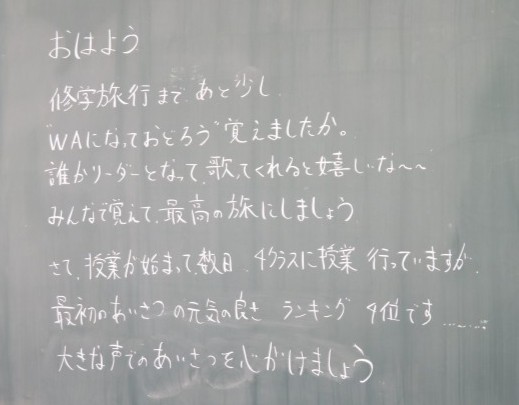 おはよう
修学旅行まで あと少し
"WAになっておどろう"覚えましたか。
誰かリーダーとなって、歌ってくれると嬉しいな～～
みんなで覚えて、最高の旅にしましょう
さて、授業が始まって数日、4クラスに授業 行っていますが、
最初のあいさつの元気の良さ ランキング 4位です………
大きな声でのあいさつを心がけましょう